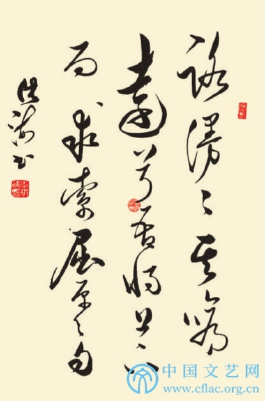 路漫々其脩
遠兮吾將上下
而求索屈原之句
书
中国文艺网
www.cflac.org.cn